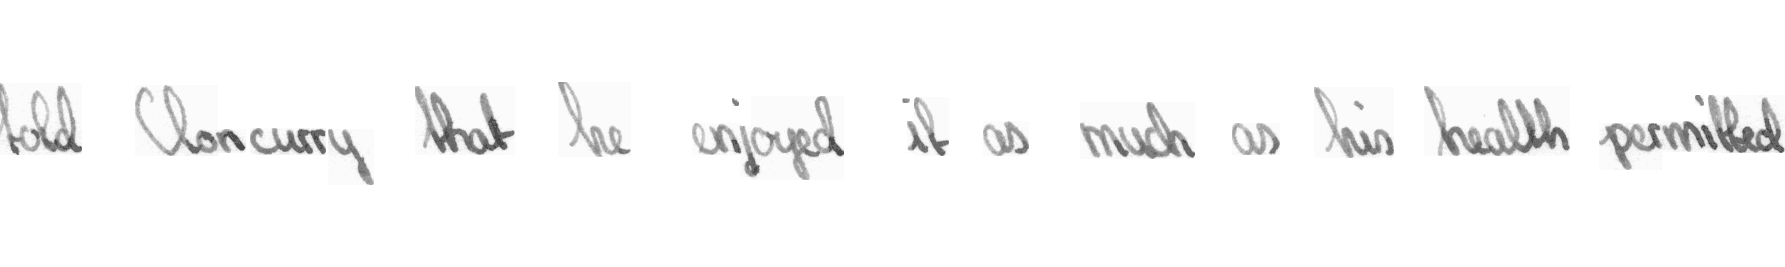 told Cloncurry that he enjoyed it as much as his health permitted